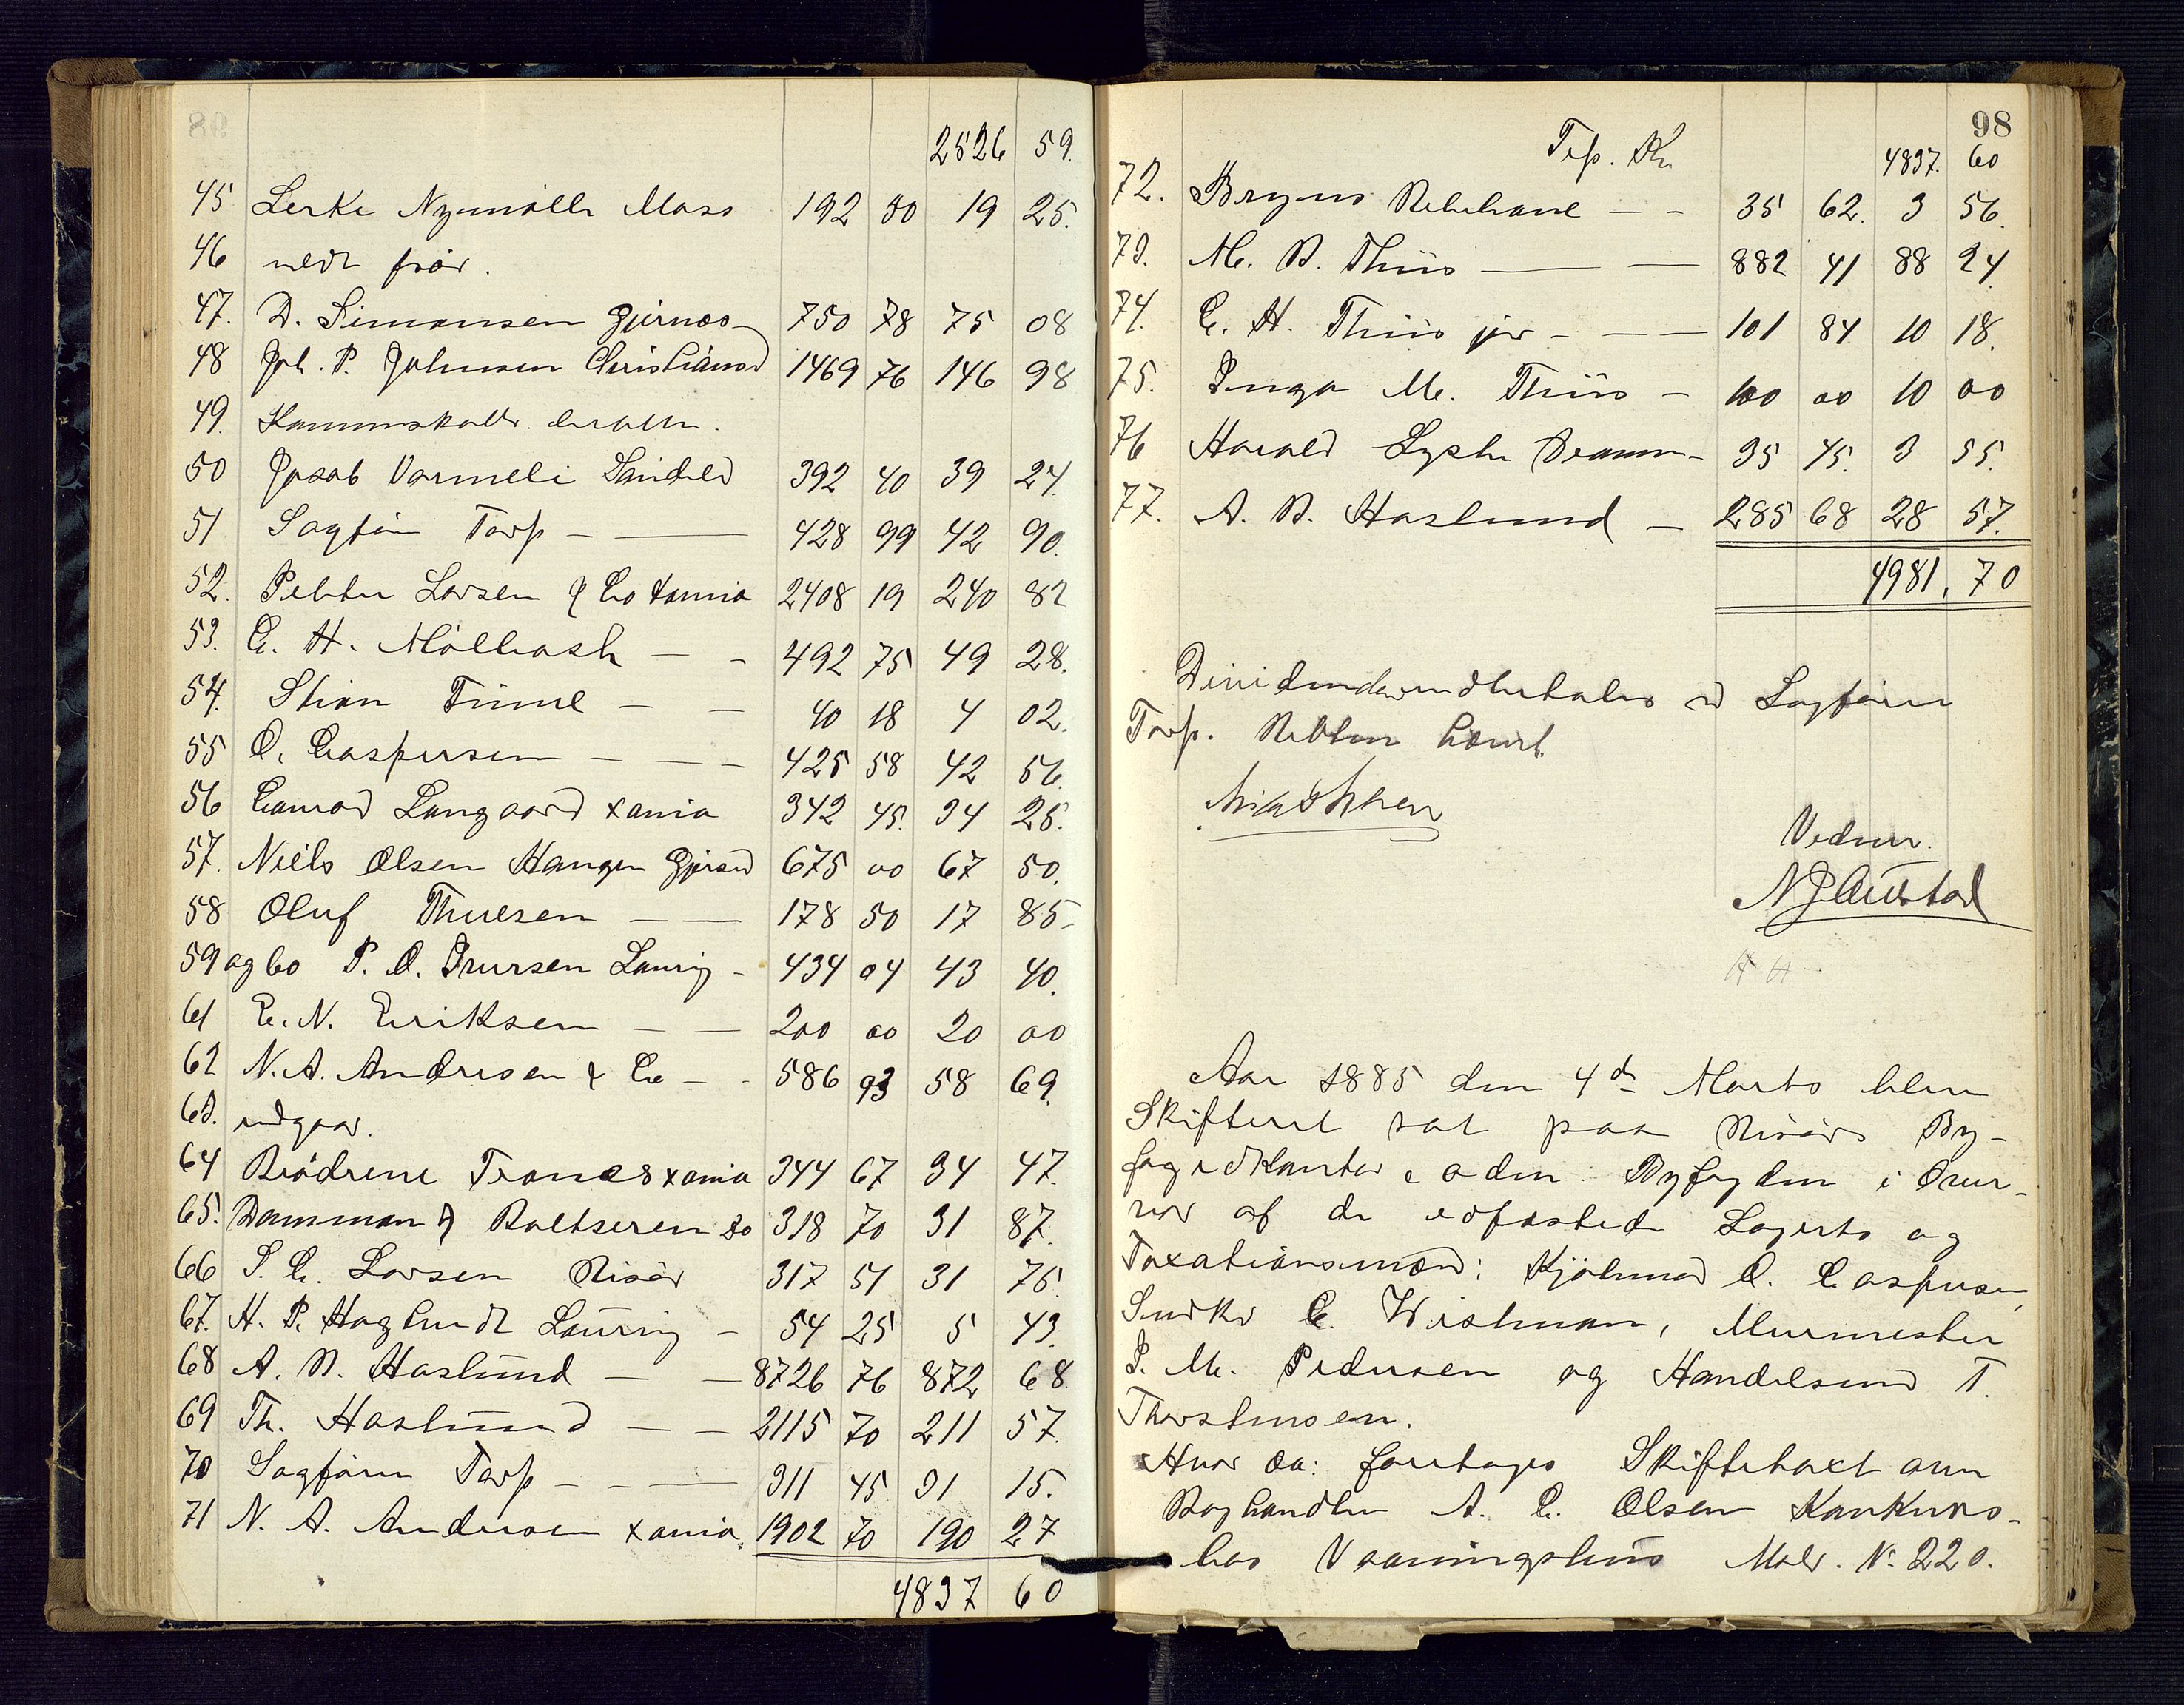 2526 59.
45 Lerke Nymölle Moss 192 50 19 25.
46 nedr før.
47. D. Simonsen Gjernæs 750 78 75 08
48 Joh. P. Johnsen Christianss 1469 76 146 98
49.
50 Jacob Varmeli Sandeld 392 40 39 24.
51 Sagfön Torp - — 428 99 42 90.
52. Petter Larsen & Co xania 2408 19 240 82
53. C. H. Möllbach — - 492 75 49 28.
54. Stian Finne - - 40 18 4 02.
55 O. Caspersen - - - 425 58 42 56.
56 Conrad Langaard xania 342 45. 34 25.
57. Niels Olsen Hangen Gjersd 675 00 67 50.
58 Oluf Thuesen — — 178 50 17 85-
59 og 60 P. O. Iversen Laurvig - 434 04 43 40.
61 E. N. Eriksen — — 200 00 20 00
62 N. A. Andresen & Co - - 586 93 58 69.
63. udgaar.
64 Brödrene Tranes xania 344 67 34 47.
65. Damman & Baltzersen Do 318 70 31 87.
66 S. C. Larsen Risör 317 51 31 75.
67. H. P. Haglundt Laurvig - 54 25 5 43.
68 A. B. Haslund — — 8726 76 872 68
69 Th. Haslund — — 2115 70 211 57.
70 Sagförer Torp - - — 311 45 31 15.
71 N. A. Andresen xania. 1902 70 190 27
4837 60
98
Trp. Kr 4837. 60
72. Bryns Rebebane — - 35 62. 3 56.
73. M. B. Thiis — — 882 41 88 24.
74. C. H. Thiis jor - — 101 84 10 18.
75. Inga M. Thiis — 100 00 10 00
76 Harald Lyche Dramm- 35 45. 3 55.
77. A. B. Haslund — 285 68 28 57.
4981. 70
Dividenden udbetales v Sagförer
Torp. Retten hævet.
Vidner.
N J Austad
Aar 1885 den 4de Marts blev
Skifteret sat paa Risörs By-
fogedkontor e adm. Byfogden i Over-
vær af de edfæstede Lagrets og
Taxationsmænd: Kjöbmd O. Caspersen,
Snedkr C. Wishman, Murmester
P. M. Pedersen og Handelsmd T.
Thorstensen.
Hvor da: foretages Skiftetaxt over
Boghandler A. C. Olsen Konkurs-
bos Vaaningshus Matr. N. 220.